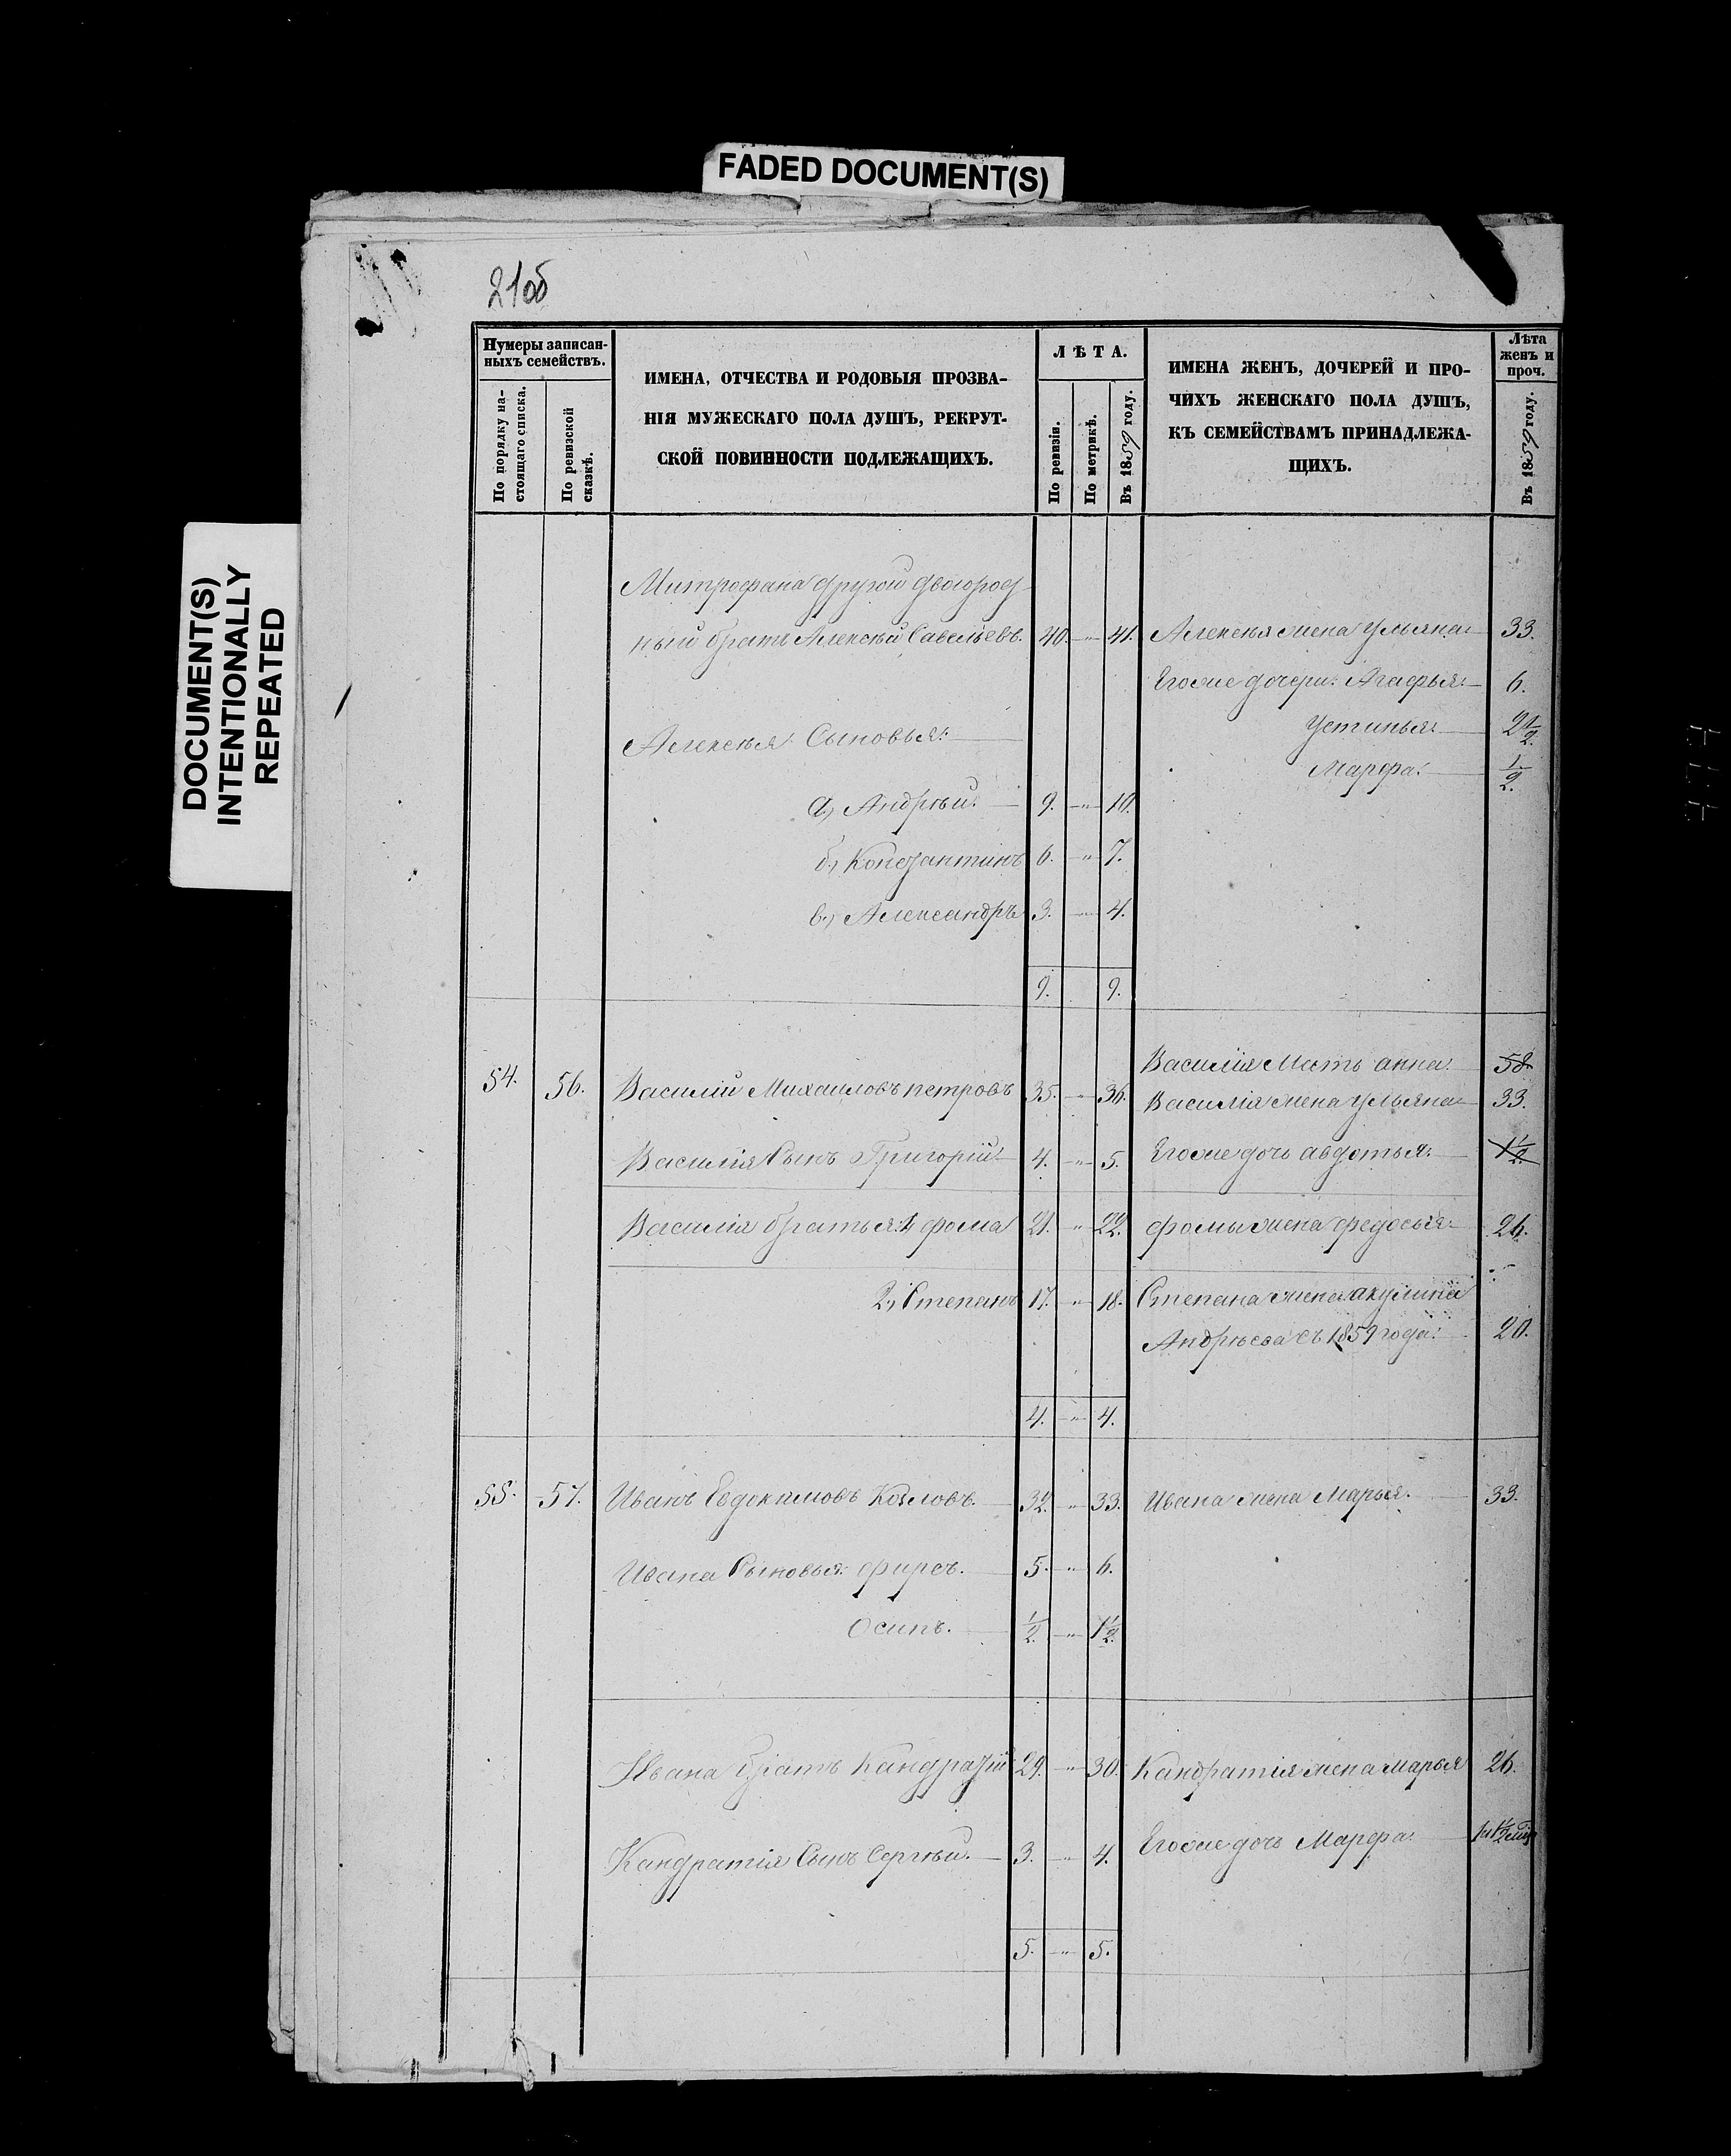 FADED DOCUMENT(S)
DOCUMENT(S)
INTENTIONALLY
REPEATED
21об
Нумеры записан-
ныхъ семействъ.
По порядку на-
стоящаго списка.
По ревизской
сказкѣ.
ИМЕНА, ОТЧЕСТВА И РОДОВЫЯ ПРОЗВА-
НІЯ МУЖЕСКАГО ПОЛА ДУШЪ, РЕКРУТ-
СКОЙ ПОВИННОСТИ ПОДЛЕЖАЩИХЪ.
ЛѢТА.
По ревизіи.
По метрикѣ.
Въ 1859 году.
ИМЕНА ЖЕНЪ, ДОЧЕРЕЙ И ПРО-
ЧИХЪ ЖЕНСКАГО ПОЛА ДУШЪ,
КЪ СЕМЕЙСТВАМЪ ПРИНАДЛЕЖА-
ЩИХЪ.
Лѣта
женъ и
проч.
Въ 1859 году.
Митрофана другой двоюрод
ный братъ Алексѣй Савельевъ. 40. — " — 41. Алексѣя жена Ульяна. 33.
Егоже дочери: Агафья. 6.
Устинья. 2 1/2.
Алексѣя Сыновья:
Марфа. 1/2.
а, Андрѣй. 9. — " — 10.
б., Константинъ 6. — " — 7.
в., Александръ 3. — " — 4.
9. 9.
Василія Мать анна. 58.
54. 56. Василій Михаиловъ петровъ 35. — " — 36. Василія жена Ульяна 33.
Василія Сынъ Григорій. 4. — " — 5. Егоже дочь авдотья. 1 1/2.
Василія братья: 1, фома 21. — " — 22. фомы жена федосья. 26.
2, Степанъ 17. — " — 18. Степана жена акулина
Андрѣева съ 1859 года. 20.
4. — " — 4.
55. 57. Иванъ Евдокимовъ Козловъ. 32. — " — 33. Ивана жена Марья. 33.
Ивана Сыновья: фирсъ. 5. — " — 6.
Осипъ. 1/2 — " — 1 1/2.
Ивана братъ Кандратій 29. — " — 30. Кандратія жена марья 26.
Кандратія Сынъ Сергѣй. 3. — " — 4. Егоже дочь Марфа.
5. — " — 5.